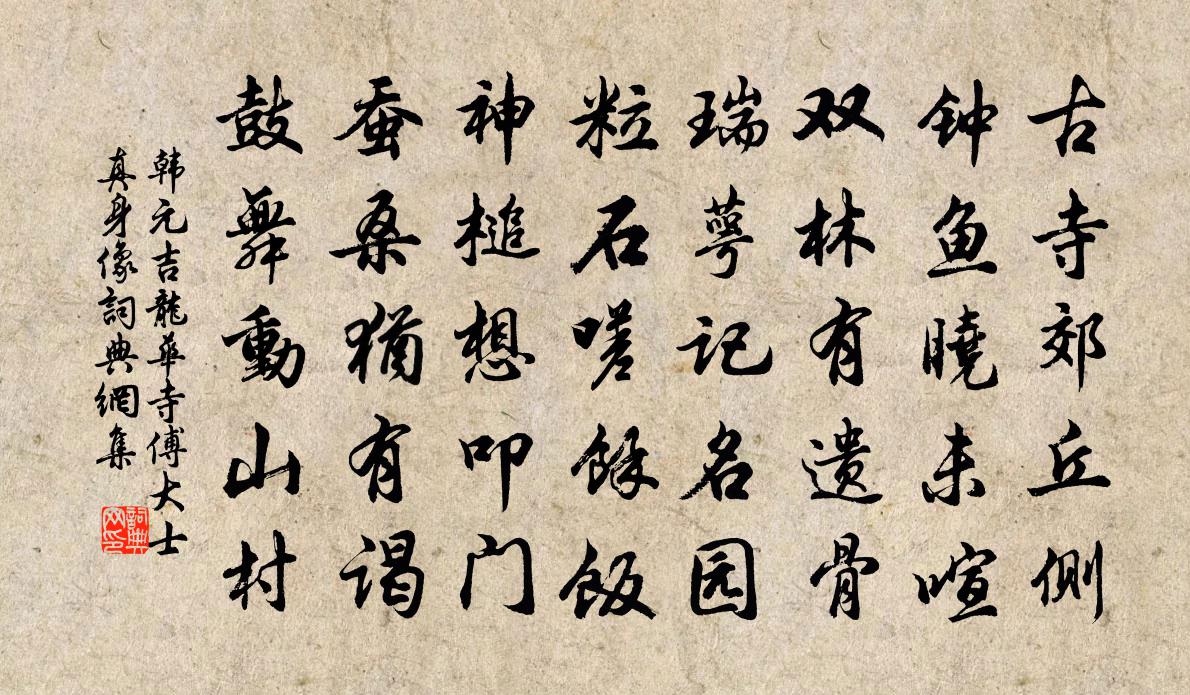 古寺郊丘侧
钟鱼曉未喧
双林有遗骨
瑞萼记名园
粒石嗟餘饭
神槌想叩门
蚕桑犹有谒
鼓舞動山村
韩元吉龍華寺傅大士
真身像詞典網集
詞典网印